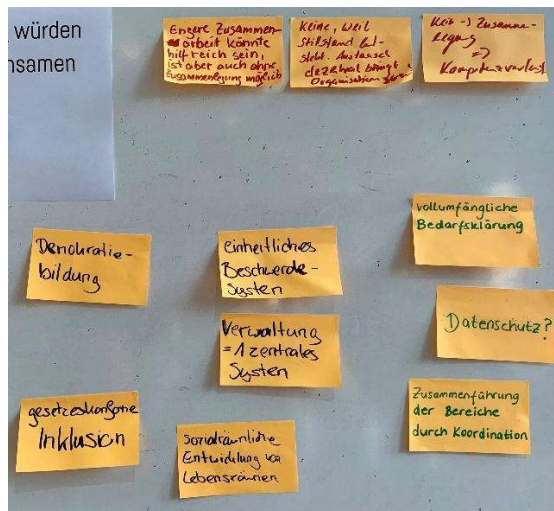 würden
nsamen
Engere Zusammen-
arbeit könnte
hilfreich sein,
ist aber auch ohne
Zusammenlegung möglich
Keine, weil
stillstand
Austausch
dezernal bringt
Organisation
Kein → Zusammen-
legung
⇒
Kompetenzverlust
Demokratie-
bildung
einheitliches
Beschwerde-
System
vollumfängliche
Bedarfsklärung
Verwaltung
= 1 zentrales
System
Datenschutz?
gesetzeskonforme
Inklusion
Sozialräumliche
Entwicklung von
Lebensräumen
Zusammenführung
der Bereiche
durch Koordination